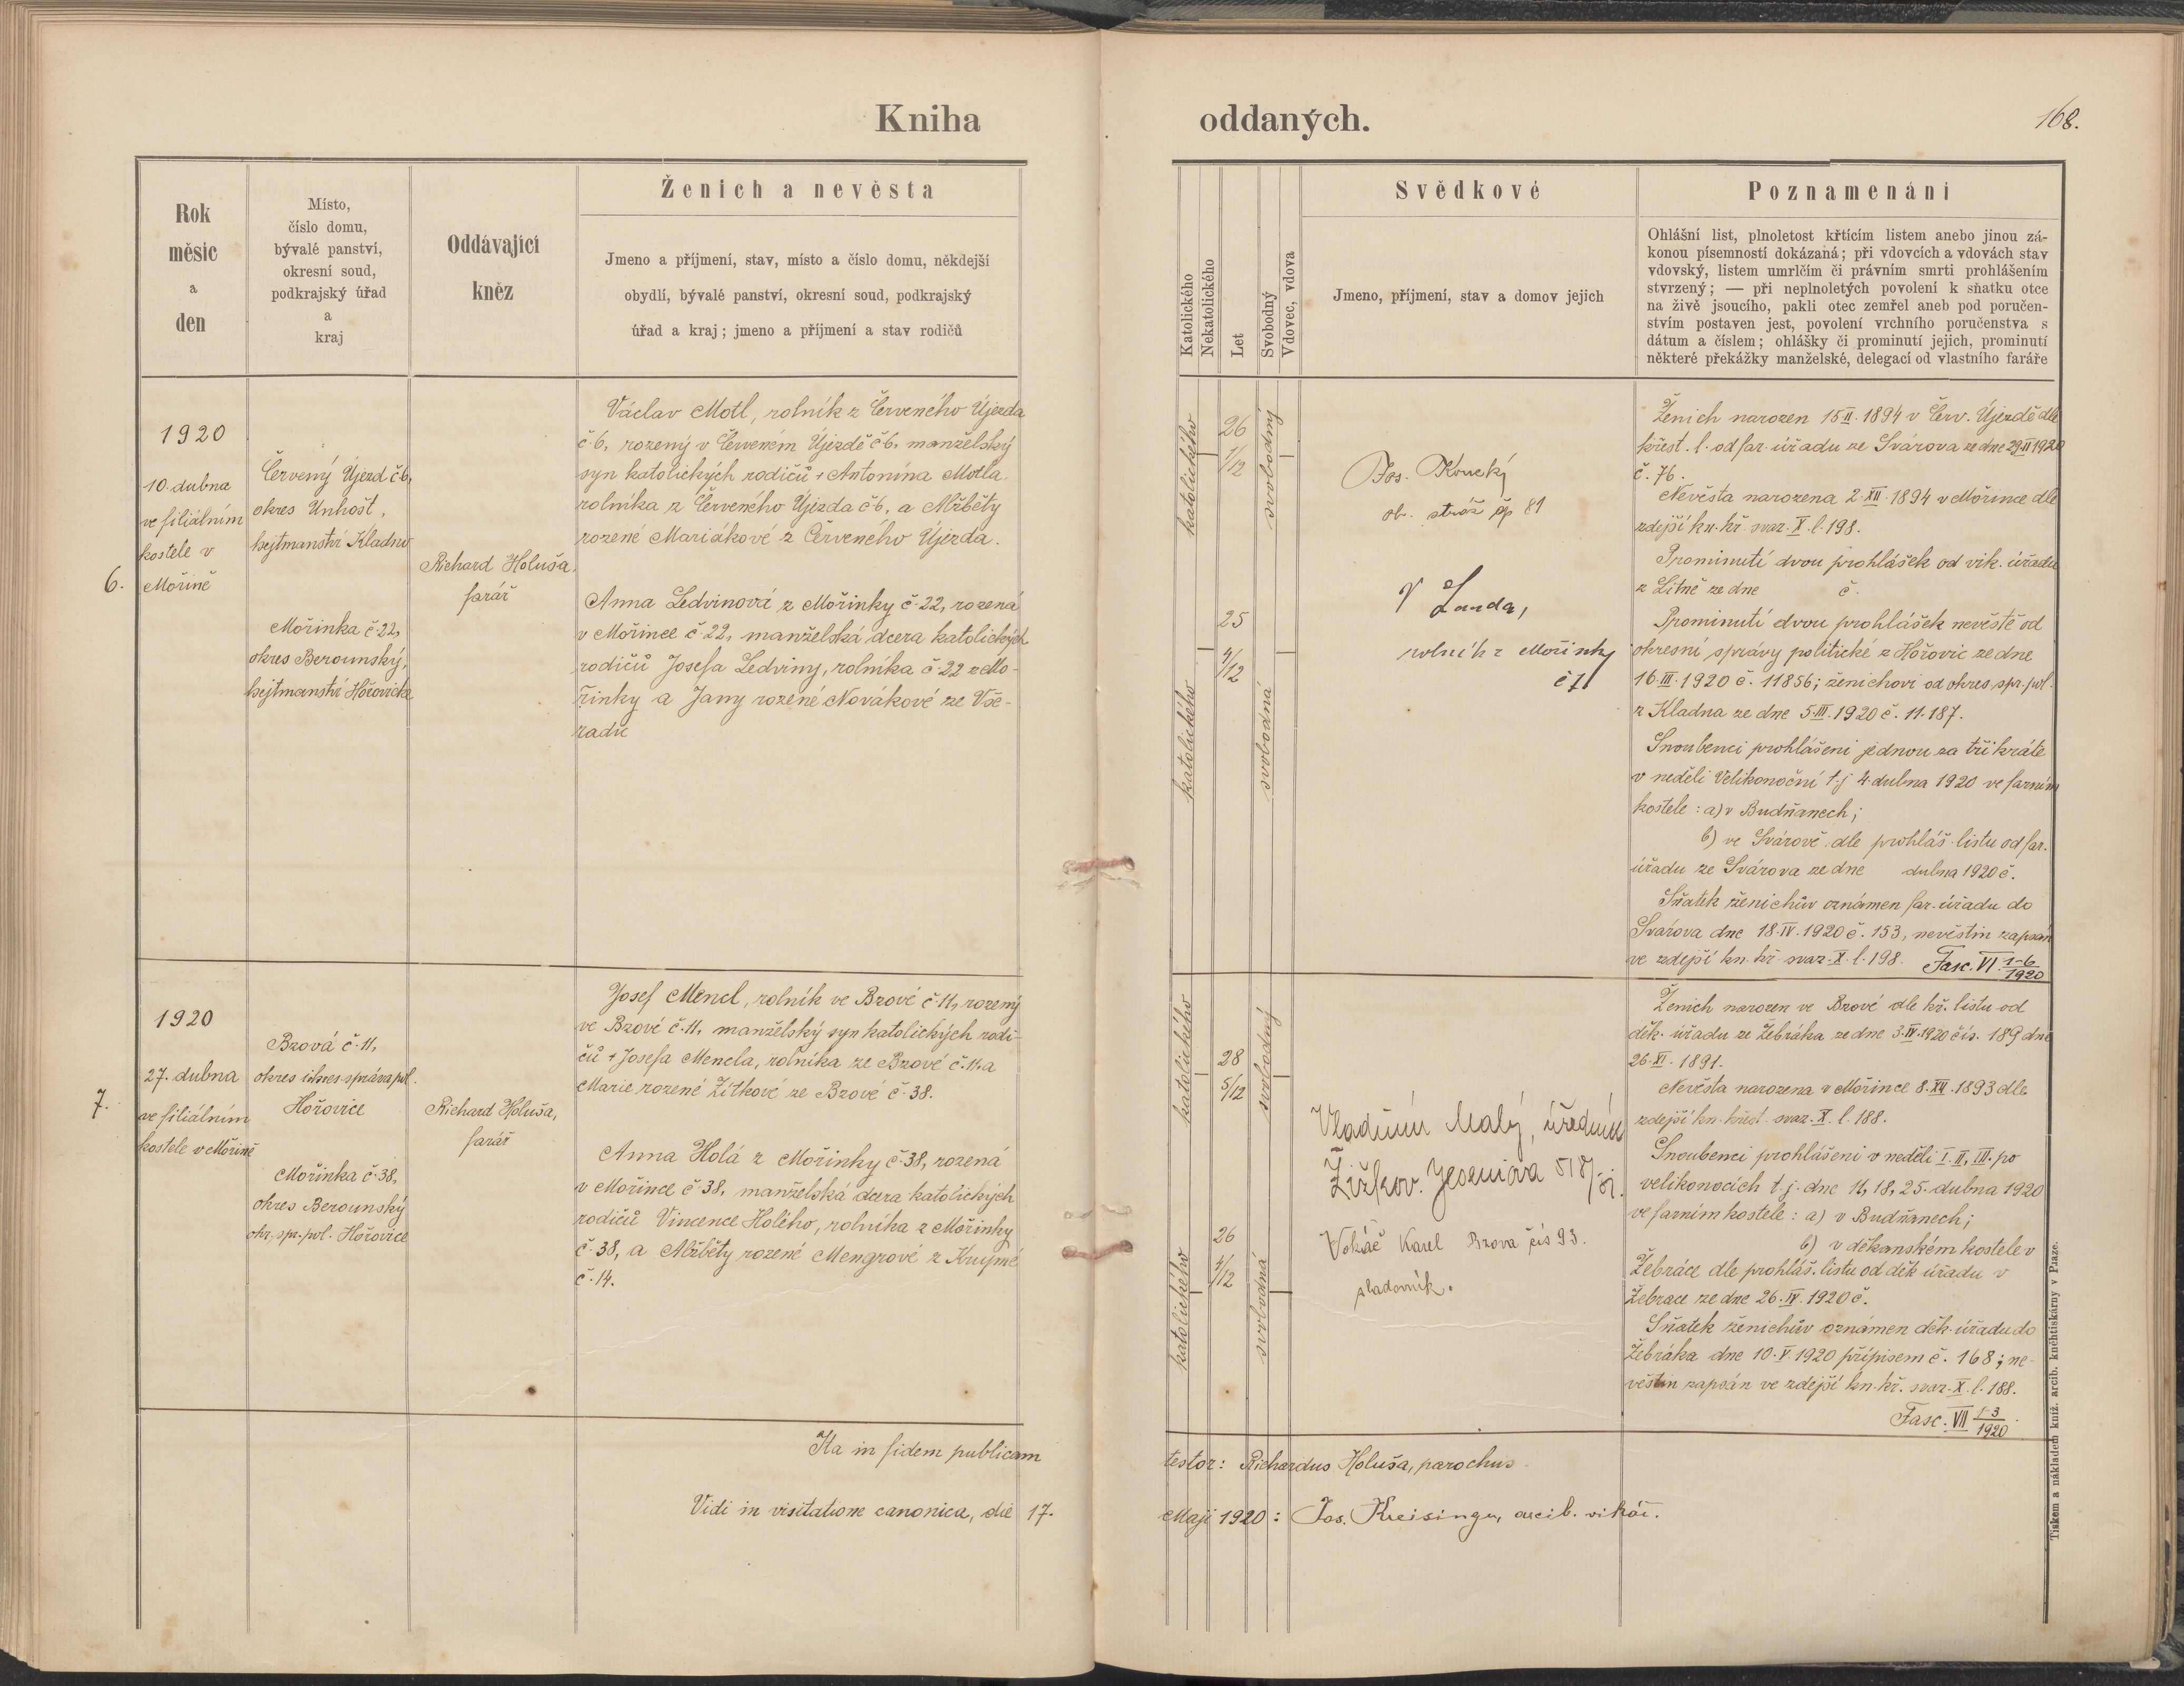 Kniha oddaných.
168.
Rok
měsíc
a
den
Místo,
číslo domu,
bývalé panství,
okresní soud,
podkrajský úřad
a
kraj
Oddávající
kněz
Ženich a nevěsta
Jmeno a příjmení, stav, místo a číslo domu, někdejší
obydlí, bývalé panství, okresní soud, podkrajský
úřad a kraj; jmeno a příjmení a stav rodičů
Katolického
Nekatolického
Let
Svobodný
Vdovec, vdova
Svědkové
Jmeno, příjmení, stav a domov jejich
Poznamenání
Ohlášní list, plnoletost křtícím listem anebo jinou zá-
konou písemností dokázaná; při vdovcích a vdovách stav
vdovský, listem umrlčím či právním smrti prohlášením
stvrzený; — při neplnoletých povolení k sňatku otce
na živě jsoucího, pakli otec zemřel aneb pod poručen-
stvím postaven jest, povolení vrchního poručenstva s
dátum a číslem; ohlášky či prominutí jejich, prominutí
některé překážky manželské, delegací od vlastního faráře
6.
1920
10. dubna
ve filiálním
kostele v
Mořině
Červený Újezd č 6,
okres Unhošť,
hejtmanství Kladno
Mořinka č. 22,
okres Berounský,
hejtmanství Hořovické
Richard Holuša,
farář
Václav Motl, rolník z Červeného Újezda
č. 6, rozený v Červeném Újezdě č 6, manželský
syn katolických rodičů † Antonína Motla
rolníka z Červeného Újezda č 6, a Alžběty
rozené Mariákové z Červeného Újezda.
Anna Ledvinová z Mořinky č. 22, rozená
v Mořince č. 22, manželská dcera katolických
rodičů Josefa Ledviny, rolníka č. 22 z Mo-
řinky a Jany rozené Novákové ze Vše-
radic
katolického
26
1/12
svobodný
katolického
25
4/12
svobodná
Jos. Koucký
ob. stráž čp 81
V Landa,
rolník z Mořinky
č 71
Ženich narozen 15 II. 1894 v Červ. Újezdě dle
křest. l. od far. úřadu ze Svárova ze dne 29 II 1920
č. 76.
Nevěsta narozena 2. XII. 1894 v Mořince dle
zdejší kn. kř. svaz. X. l. 198.
Prominutí dvou prohlášek od vik. úřadu
z Litně ze dne č.
Prominutí dvou prohlášek nevěstě od
okresní správy politické z Hořovic ze dne
16. III. 1920 č. 11856; ženichovi od okres. spr. pol.
z Kladna ze dne 5. III. 1920 č. 11.187.
Snoubenci prohlášeni jednou za tři kráte
v neděli Velikonoční t. j 4. dubna 1920 ve farním
kostele: a) v Budňanech;
b) ve Svárově dle prohláš. listu od far.
úřadu ze Svárova ze dne dubna 1920 č.
Sňatek ženichův oznámen far. úřadu do
Svárova dne 18. IV. 1920 č. 153, nevěstin zapsán
ve zdejší kn. kř. svaz. X. l. 198. Fasc. VI. 1-6/1920
7.
1920
27. dubna
ve filiálním
kostele v Mořině
Bzová č. 11,
správa pol.
Hořovice
Mořinka č. 38,
okres Berounský
okr. spr. pol. Hořovice
Richard Holuša,
farář
Josef Mencl, rolník ve Bzové č. 11, rozený
ve Bzové č. 11, manželský syn katolických rodi-
čů † Josefa Mencla, rolníka ze Bzové č. 11. a
Marie rozené Žítkové ze Bzové č. 38.
Anna Holá z Mořinky č. 38, rozená
v Mořince č. 38, manželská dcera katolických
rodičů Vincence Holého, rolníka z Mořinky
č. 38, a Alžběty rozené Mengrové z Krupné
č. 14.
katolického
28
5/12
svobodný
katolického
26
4/12
svobodná
Vladimír Malý, úředník
Žižkov. Jeseniova 518/
Vokáč Karel Bzova čís 93.
sladovník.
Ženich narozen ve Bzové dle kř. listu od
děk. úřadu ze Žebráka ze dne 3. IV. 1920 čís. 189 dne
26. XI. 1891.
Nevěsta narozena v Mořince 8. XII. 1893 dle
zdejší kn. křest. svaz. X. l. 188.
Snoubenci prohlášeni v neděli I. II, III. po
velikonocích t. j. dne 11, 18, 25. dubna 1920
ve farním kostele: a) v Budňanech;
b) v děkanském kostele v
Žebráce dle prohláš. listu od děk úřadu v
Žebrace ze dne 26. IV. 1920 č.
Sňatek ženichův oznámen děk. úřadu do
Žebráka dne 10. V. 1920 přípisem č. 168; ne-
věstin zapsán ve zdejší kn. kř. svaz. X. l. 188.
Fasc. VII 1-3/1920.
Ita in fidem publicam testor: Richardus Holuša, parochus.
Vidi in visitatione canonica, die 17. Maji 1920: Jos. Kreisinger, arcib. vikář.
Tiskem a nákladem kníž. arcib. knihtiskárny v Praze.